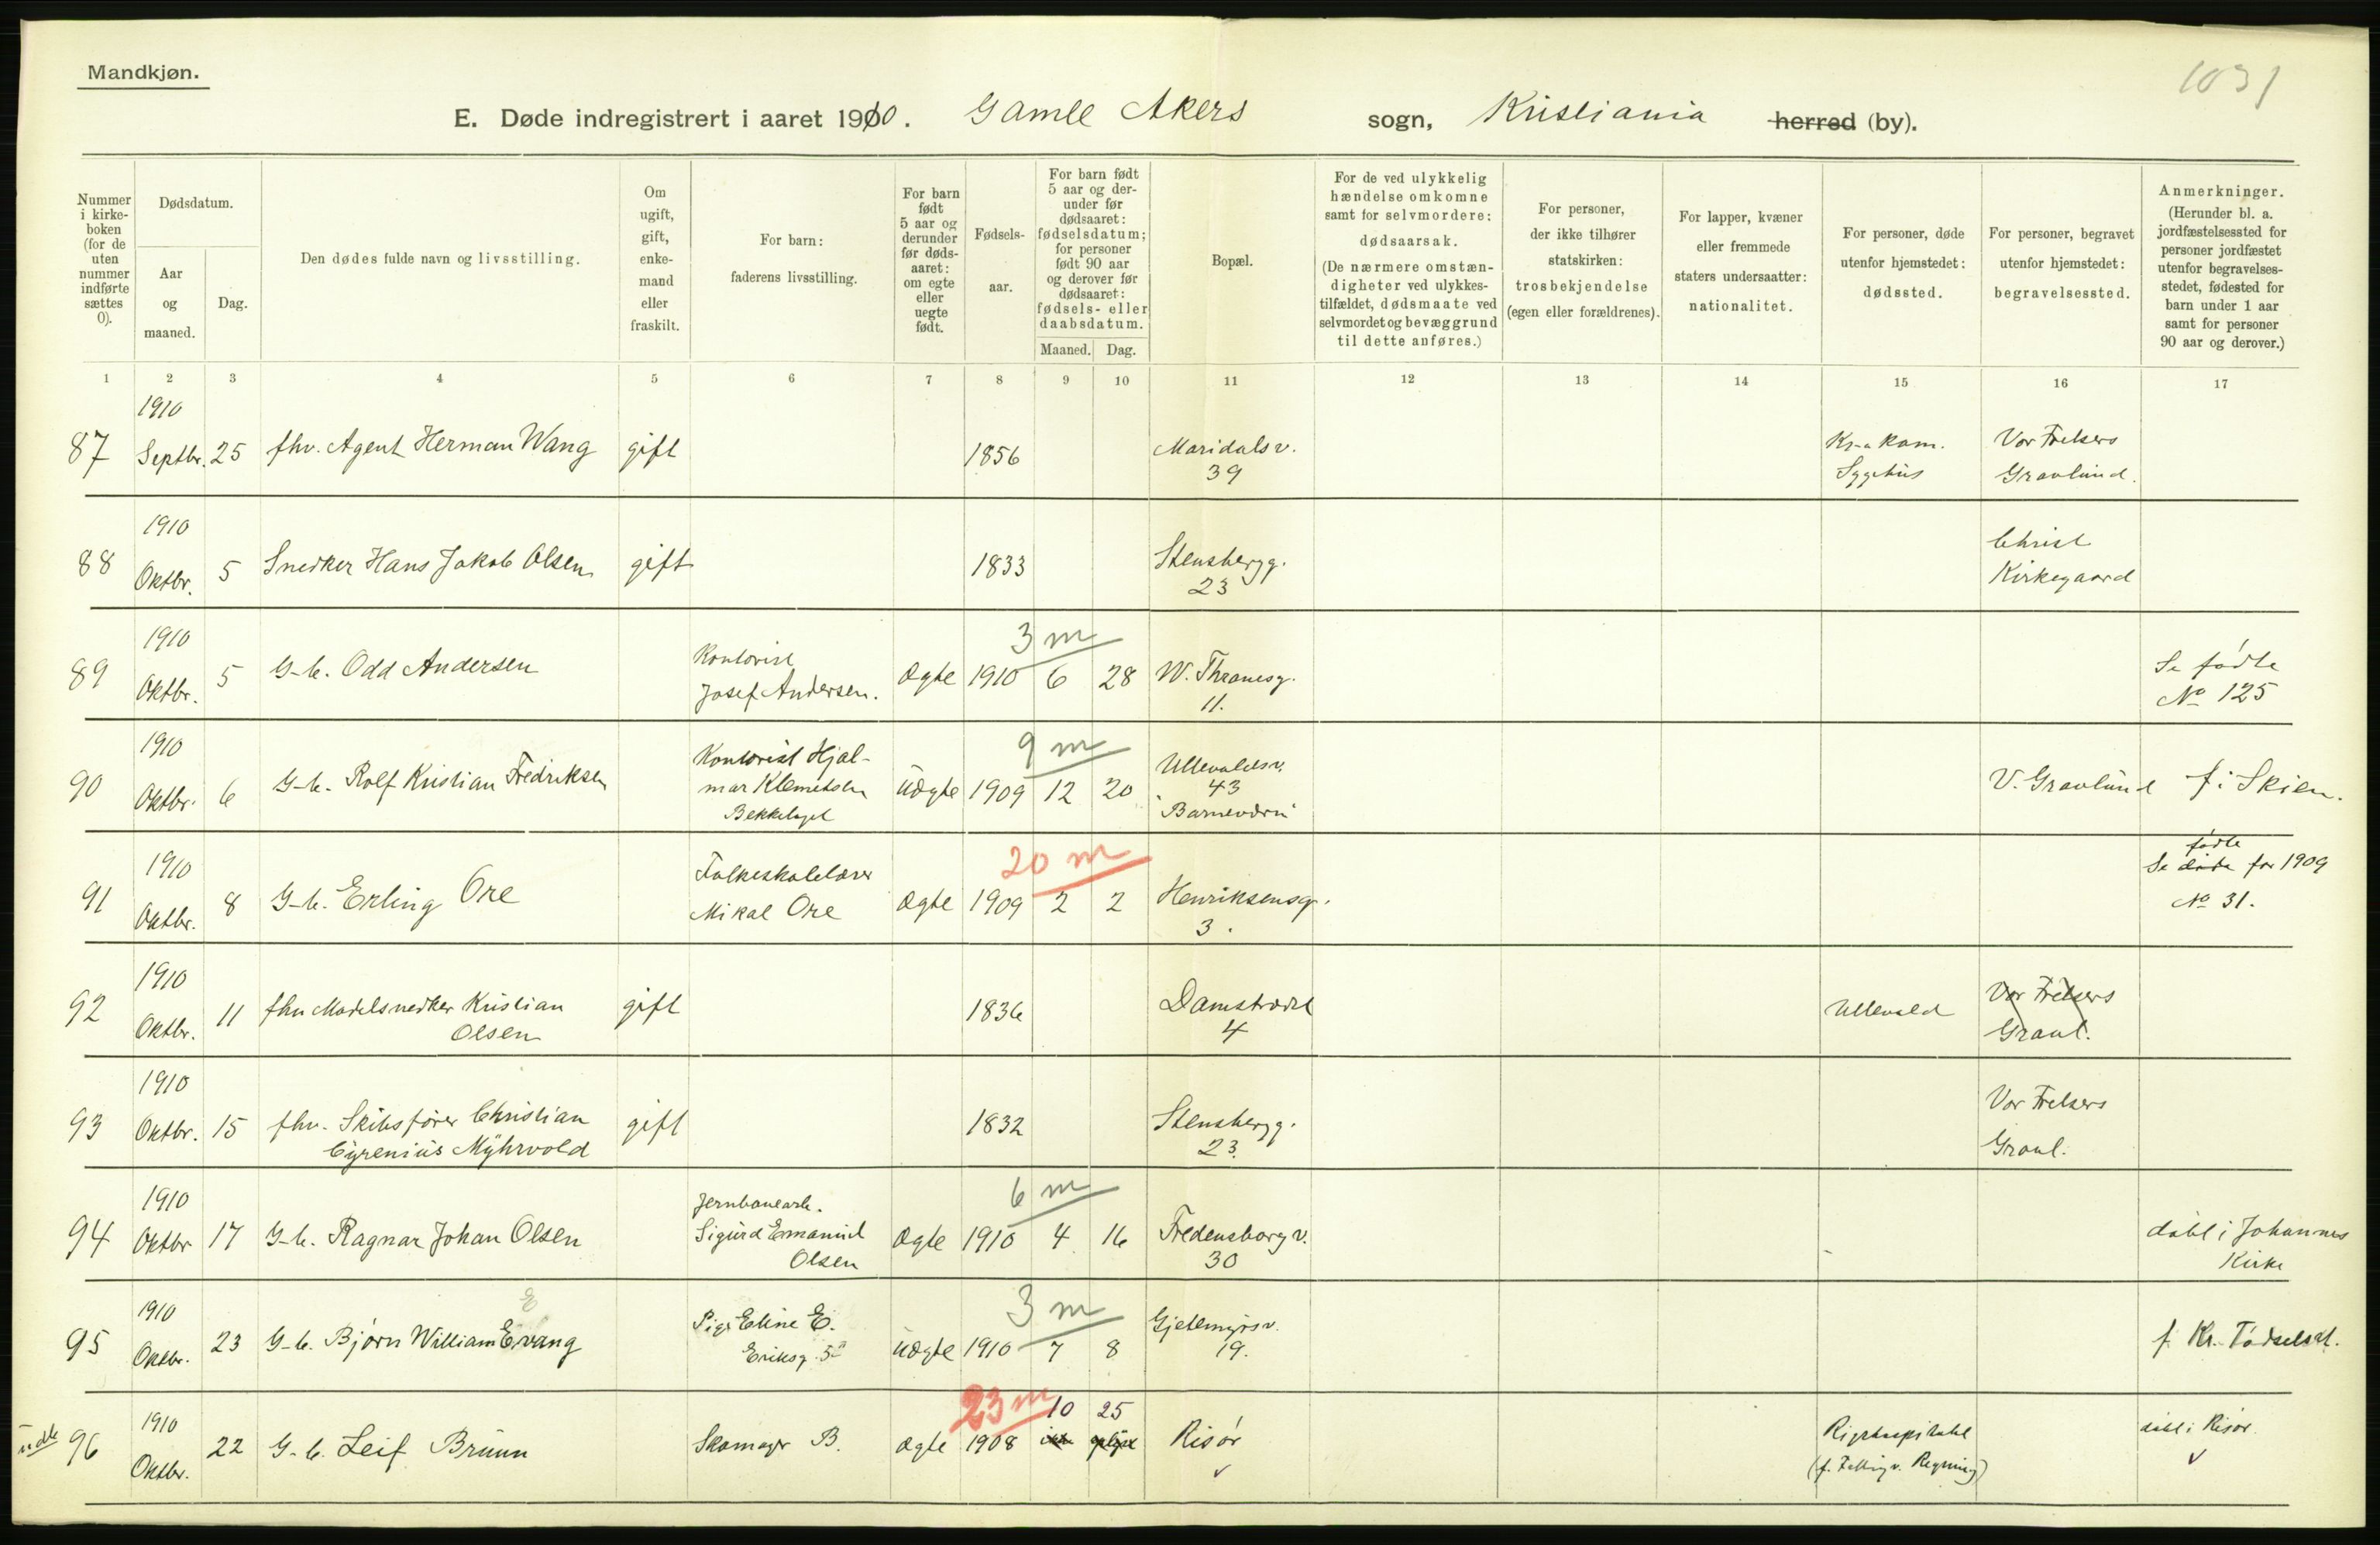 Mandkjøn.
1031
E. Døde indregistrert i aaret 1910. Gamle Akers sogn, Kristiania herred (by).
Nummer i kirkeboken (for de uten nummer indførte sættes 0).
Dødsdatum.
Aar og maaned.
Dag.
Den dødes fulde navn og livsstilling.
Om ugift, gift, enkemand eller fraskilt.
For barn: faderens livsstilling.
For barn født 5 aar og derunder før dødsaaret: om egte eller uegte født.
Fødselsaar.
For barn født 5 aar og derunder før dødsaaret: fødselsdatum; for personer født 90 aar og derover før dødsaaret: fødsels- eller daabsdatum.
Maaned. Dag.
Bopæl.
For de ved ulykkelig hændelse omkomne samt for selvmordere: dødsaarsak. (De nærmere omstændigheter ved ulykkestilfældet, dødsmaate ved selvmordet og bevæggrund til dette anføres.)
For personer, der ikke tilhører statskirken: trosbekjendelse (egen eller forældrenes).
For lapper, kvæner eller fremmede staters undersaatter: nationalitet.
For personer, døde utenfor hjemstedet: dødssted.
For personer, begravet utenfor hjemstedet: begravelsessted.
Anmerkninger. (Herunder bl. a. jordfæstelsessted for personer jordfæstet utenfor begravelsesstedet, fødested for barn under 1 aar samt for personer 90 aar og derover.)
1 2 3 4 5 6 7 8 9 10 11 12 13 14 15 16 17
87 1910 Septbr. 25 fhv. Agent Herman Wang gift 1856 Maridalsv. 39 Kr-a kom. Sygehus Vor Frelsers Gravlund.
88 1910 Oktbr. 5 Snedker Hans Jakob Olsen gift 1833 Stensbergg. 23 Christ Kirkegaard
89 1910 Oktbr. 5 G-b. Odd Andersen Kontorist Josef Andersen. Ægte 1910 6 28 3 m W. Thranesg. 11. Se fødte No 125
90 1910 Oktbr. 6 G-b. Rolf Kristian Fredriksen Kontorist Hjalmar Klemetsen Bekkelaget Uægte 1909 12 20 9 m Ullevaldsv. 43 "Barneværn" V. Gravlund f. i Skien.
91 1910 Oktbr. 8 G-b. Erling Ore Folkeskolelærer Mikal Ore Ægte 1909 2 2 20 m Henriksensg. 3. Se døde fødte for 1909 No 31.
92 1910 Oktbr. 11 fhv Modelsnedker Kristian Olsen gift 1836 Damstrædet 4 Ullevold Vor Frelsers Gravl.
93 1910 Oktbr. 15 fhv. Skibsfører Christian Cyrenius Myhrvold gift 1832 Stensbergg. 23. Vor Frelsers Gravl.
94 1910 Oktbr 17 G-b. Ragnar Johan Olsen Jernbanearb. Sigurd Emanuel Olsen Ægte 1910 4 16 6 m Fredensborgv. 30 døbt i Johannes Kirke
95 1910 Oktbr. 23 G-b. Bjørn William Evang E Pige Eline E. Eriksg. 5 Uægte 1910 7 8 3 m Gjetemyrsv. 19. f. Kr. Fødselsst.
ude 96 1910 Oktbr. 22 G-b. Leif Bruun Skomager B. Ægte 1908 ikke oplyst 10 25 23 m Risør Rigshospitalet døbt i Risør.